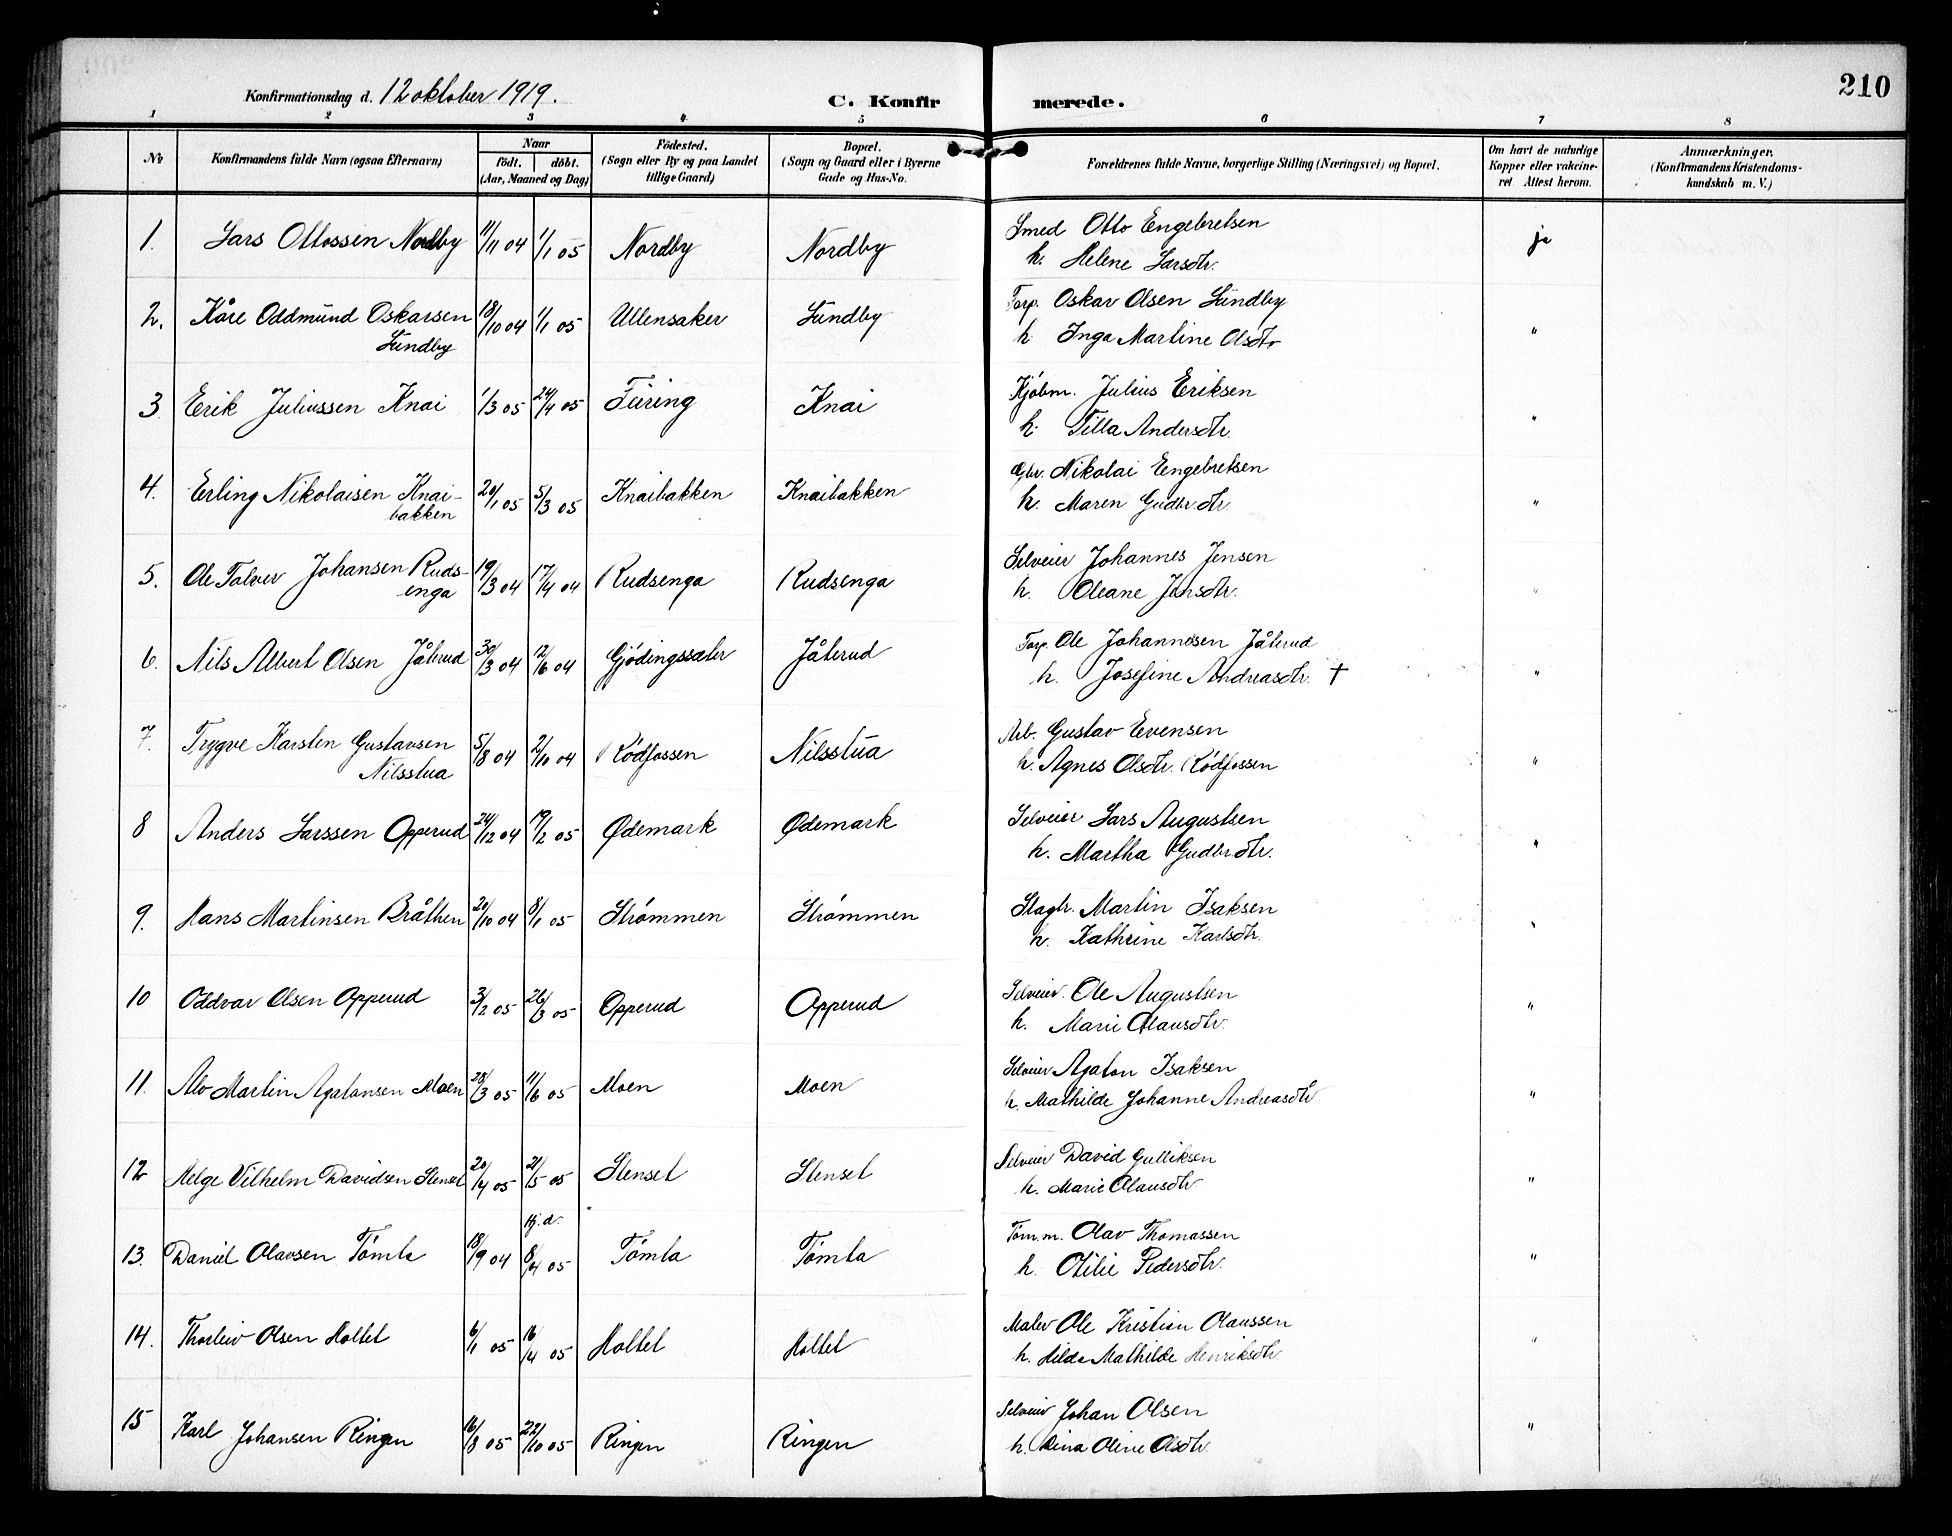 Konfirmationsdag d. 12 oktober 1919.
C. Konfir merede. 210
1 2 3 4 5 6 7 8
No
Konfirmandens fulde Navn (ogsaa Efternavn)
Naar
født. døbt.
(Aar, Maaned og Dag)
Fødested.
(Sogn eller By og paa Landet
tillige Gaard)
Bopæl.
(Sogn og Gaard eller i Byerne
Gade og Hus-No.
Forældrenes fulde Navne, borgerlige Stilling (Næringsvei) og Bopæl.
Om havt de naturlige
Kopper eller vakcine-
ret Attest herom.
Anmærkninger,
(Konfirmandens Kristendoms-
kundskab m. V.)
1. Lars Ottossen Nordby 11/11 04 1/1 05 Nordby Nordby Smed Otto Engebretsen ja
h. Helene Larsdtr.
2. Kåre Oddmund Oskarsen 18/10 04 1/1 05 Ullensaker Lundby Torp. Oskar Olsen Lundby
Lundby h. Inga Martine Olsdtr "
3. Erik Juliussen Knai 1/3 05 24/4 05 Furing Knai Kjøbm. Julius Eriksen
h. Tilla Andersdtr. "
4. Erling Nikolaisen Knai- 20/1 05 5/3 05 Knaibakken Knaibakken Gbr. Nikolai Engebretsen
bakken h. Maren Gudbr.dtr. "
5. Ole Tolver Johansen Ruds- 19/3 04 17/4 04 Rudsenga Rudsenga Selveier Johannes Jensen
enga h. Oleane Jonsdtr. "
6. Nils Albert Olsen Jåterud 30/3 04 12/6 04 Gjødingssæter Jåterud Torp. Ole Johannesen Jåterud
h. Josefine Andreasdtr. † "
7. Trygve Karsten Gustavsen 5/8 04 2/10 04 Kødfossen Nilsstua Arb. Gustav Evensen
Nilsstua h. Agnes Olsdtr. Kødfossen "
8 Anders Larssen Opperud 24/12 04 19/2 05 Ødemark Ødemark Selveier Lars Augustsen
h. Martha Gudbr.dtr. "
9. Hans Martinsen Bråthen 20/10 04 8/1 05 Strømmen Strømmen Slagtr. Martin Isaksen
h. Kathrine Karlsdtr. "
10 Oddvar Olsen Opperud 3/2 05 26/3 05 Opperud Opperud Selveier. Ole Augustsen
h. Marie Olausdtr. "
11. Alv Martin Agatonsen Moen 28/3 05 11/6 05 Moen Moen Selveier Agaton Isaksen
h. Mathilde Johanne Andreasdtr "
12 Helge Vilhelm Davidsen Stenset 20/4 05 21/5 05 Stenset Stenset Selveier David Gulliksen
h. Marie Olausdtr "
13. Daniel Olavsen Tømta 18/9 04 Hj.d. 8/4 05 Tømta Tømta Tøm.m. Olav Thomassen
h. Otilie Pedersdtr. "
14. Thorleiv Olsen Holtet 6/1 05 16/4 05 Holtet Holtet Maler Ole Kristian Olaussen
h. Hilda Mathilde Henriksdtr. "
15 Karl Johansen Ringen 16/8 05 22/10 05 Ringen Ringen Selveier Johan Olsen
h. Dina Oline Olsdtr. "